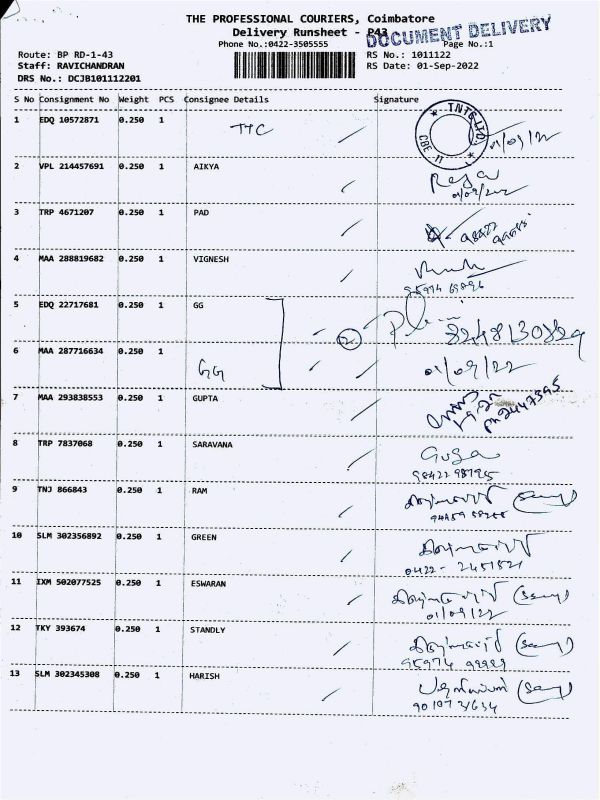 THE PROFESSIONAL COURIERS, Coimbatore
Delivery Runsheet - P43
DOCUMENT DELIVERY
Phone No.:0422-3505555
Page No.:1
Route: BP RD-1-43
RS No.: 1011122
Staff: RAVICHANDRAN
RS Date: 01-Sep-2022
DRS No.: DCJB101112201
S No Consignment No Weight PCS Consignee Details Signature
1 EDQ 10572871 0.250 1 TTC
TNTC LTD. CBE 11
01/09/22
2 VPL 214457691 0.250 1 AIKYA
Reja
01/09/2022
3 TRP 4671207 0.250 1 PAD
4 MAA 288819682 0.250 1 VIGNESH
95974 69896
5 EDQ 22717681 0.250 1 GG
2
8248130829
6 MAA 287716634 0.250 1 GG
01/09/22
7 MAA 293838553 0.250 1 GUPTA
8 TRP 7837068 0.250 1 SARAVANA
Guga
98422 98795
9 TNJ 866843 0.250 1 RAM
10 SLM 302356892 0.250 1 GREEN
0422- 2451521
11 IXM 502077525 0.250 1 ESWARAN
01/09/22
12 TKY 393674 0.250 1 STANDLY
13 SLM 302345308 0.250 1 HARISH